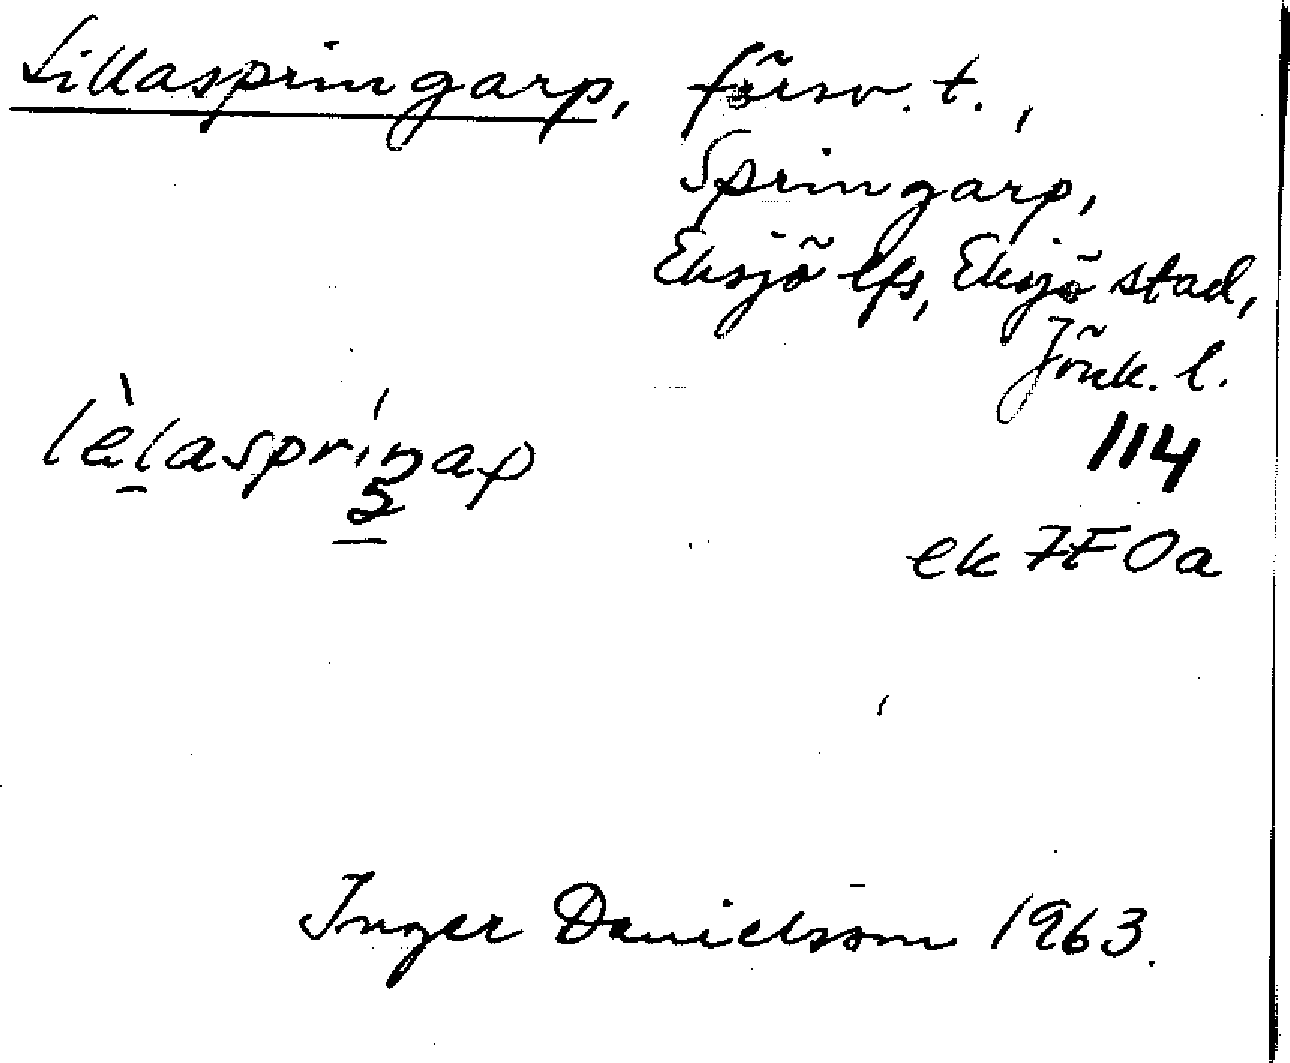 Lillaspringarp, försv. t.,
Springarp,
Eksjö lfs, Eksjö stad,
Jönk. l.
114
ek 7F 0a
Inger Danielsson 1963.